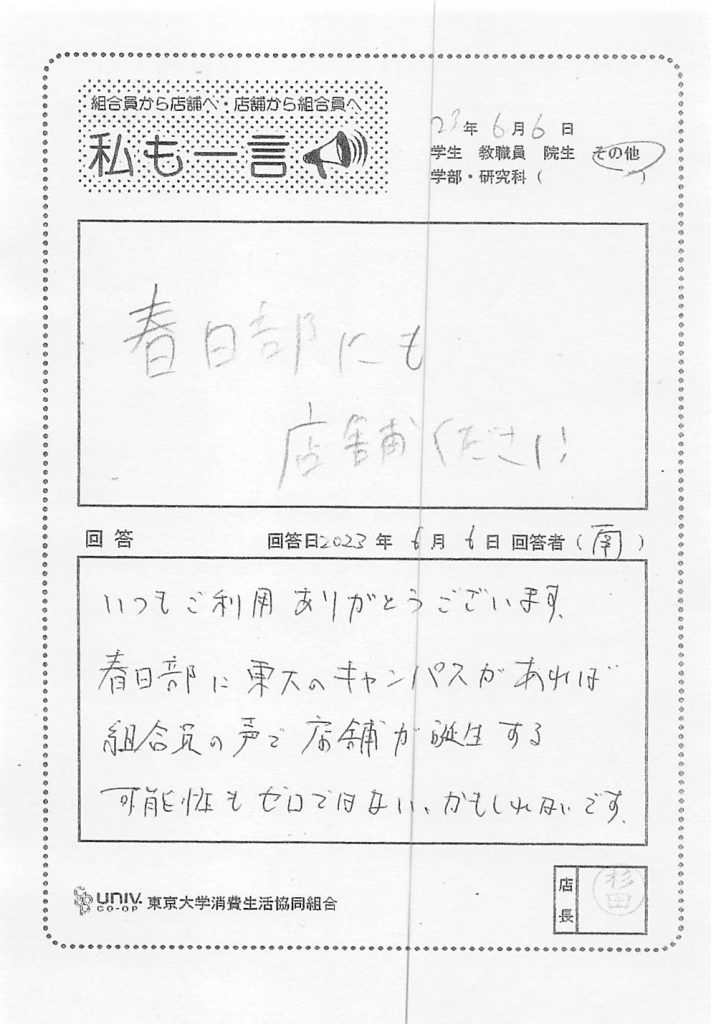 組合員から店舗へ・店舗から組合員へ
私も一言
23年 6月 6日
学生 教職員 院生 その他
学部・研究科( )
春日部にも
店舗ください
回答 回答日2023年 6月 6日 回答者(南)
いつもご利用ありがとうございます。
春日部に東大のキャンパスがあれば
組合員の声で店舗が誕生する
可能性もゼロではない、かもしれないです。
univ.
CO-OP
東京大学消費生活協同組合
店長
杉田